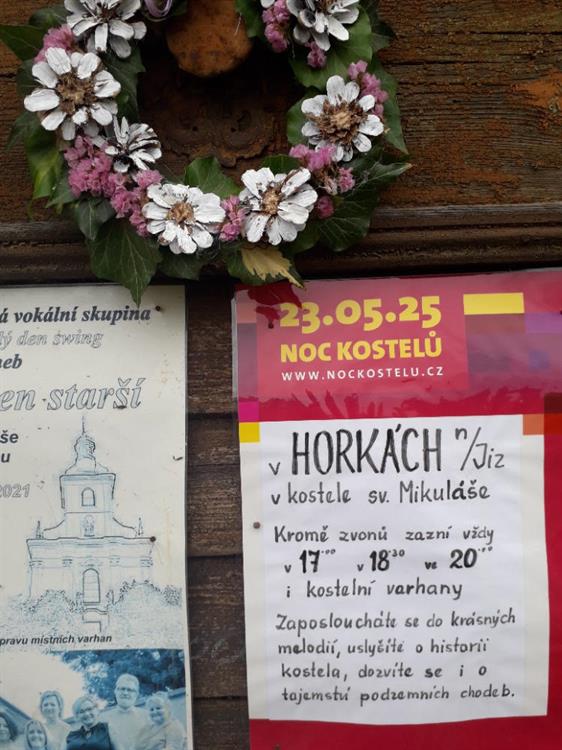 á vokální skupina
lý den swing
neb
en starší
še
u
2021
pravu místních varhan
23.05.25
NOC KOSTELŮ
WWW.NOCKOSTELU.CZ
v HORKÁCH n/Jiz
v kostele sv. Mikuláše
Kromě zvonů zazní vždy
v 17·00 v 18·30 ve 20·00
i kostelní varhany
Zaposloucháte se do krásných
melodií, uslyšíte o historii
kostela, dozvíte se i o
tajemství podzemních chodeb.